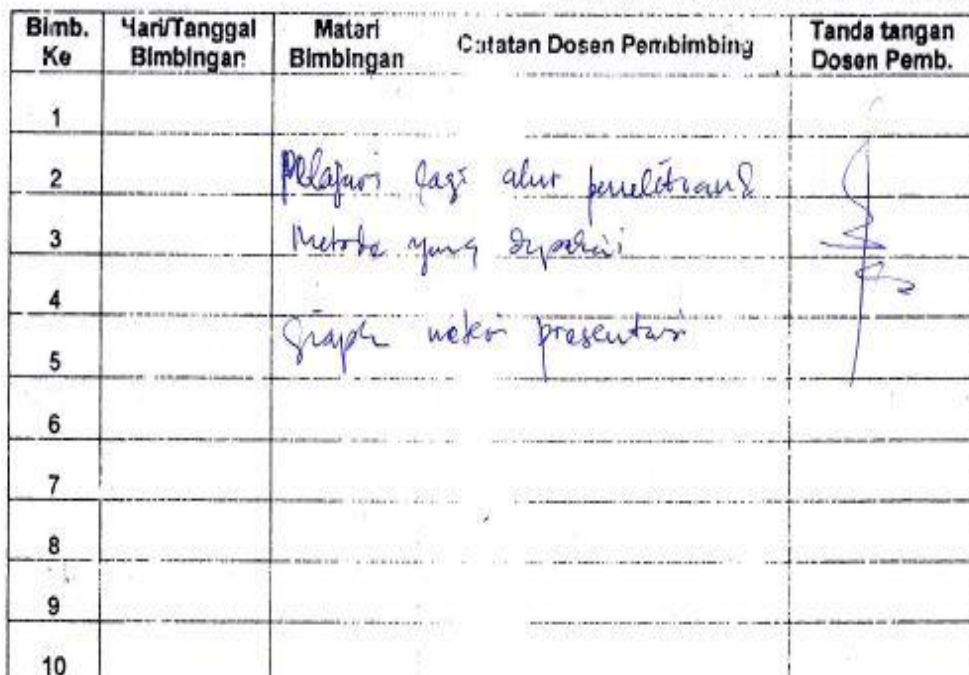 Bimb. Ke
Hari/Tanggal Bimbingan
Materi Bimbingan
Catatan Dosen Pembimbing
Tanda tangan Dosen Pemb.
1
2 Pelajari lagi alur penelitian &
3 Metode yang dipakai
4
5 presentasi
6
7
8
9
10